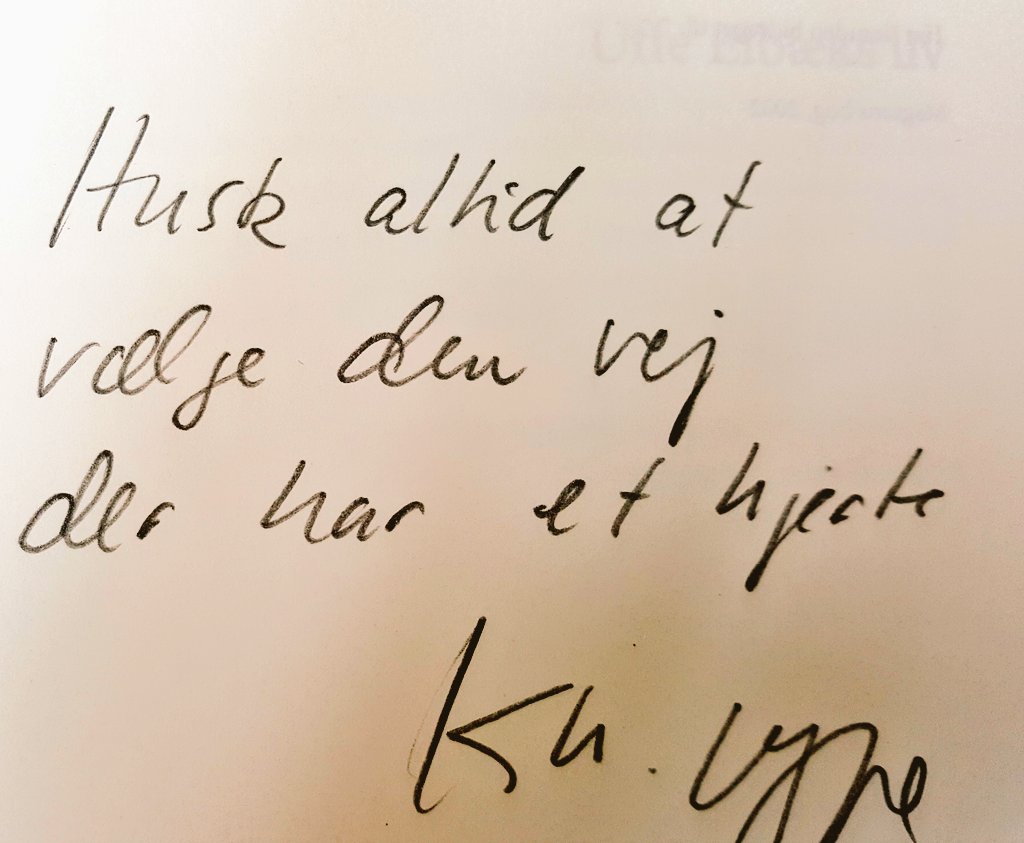 Husk altid at
vælge den vej
der har et hjerte
Kh.